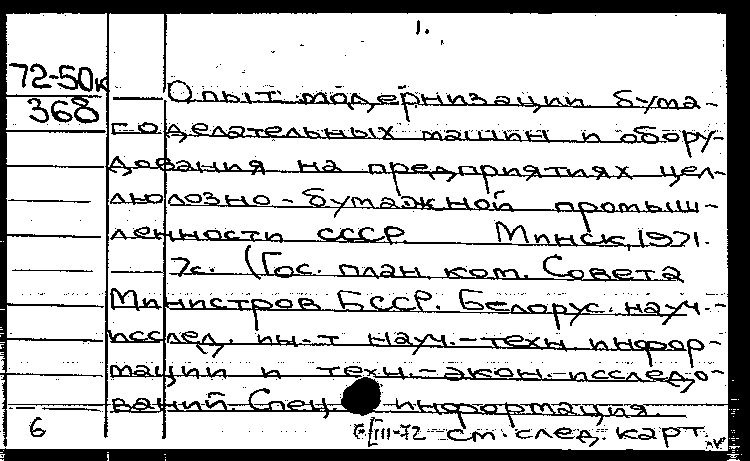 1.
72-50к
368
Опыт модернизации бума-
годелательных машин и обору-
дования на предприятиях цел-
люлозно-бумажной промыш-
ленности СССР. Минск, 1971.
7с. (Гос. план. ком. Совета
Министров БССР. Белорус. науч.-
исслед. ин-т науч.-техн. инфор-
мации и техн.-экон. исследо-
ваний. Спец. информация.
6
III-72 см. след. карт.